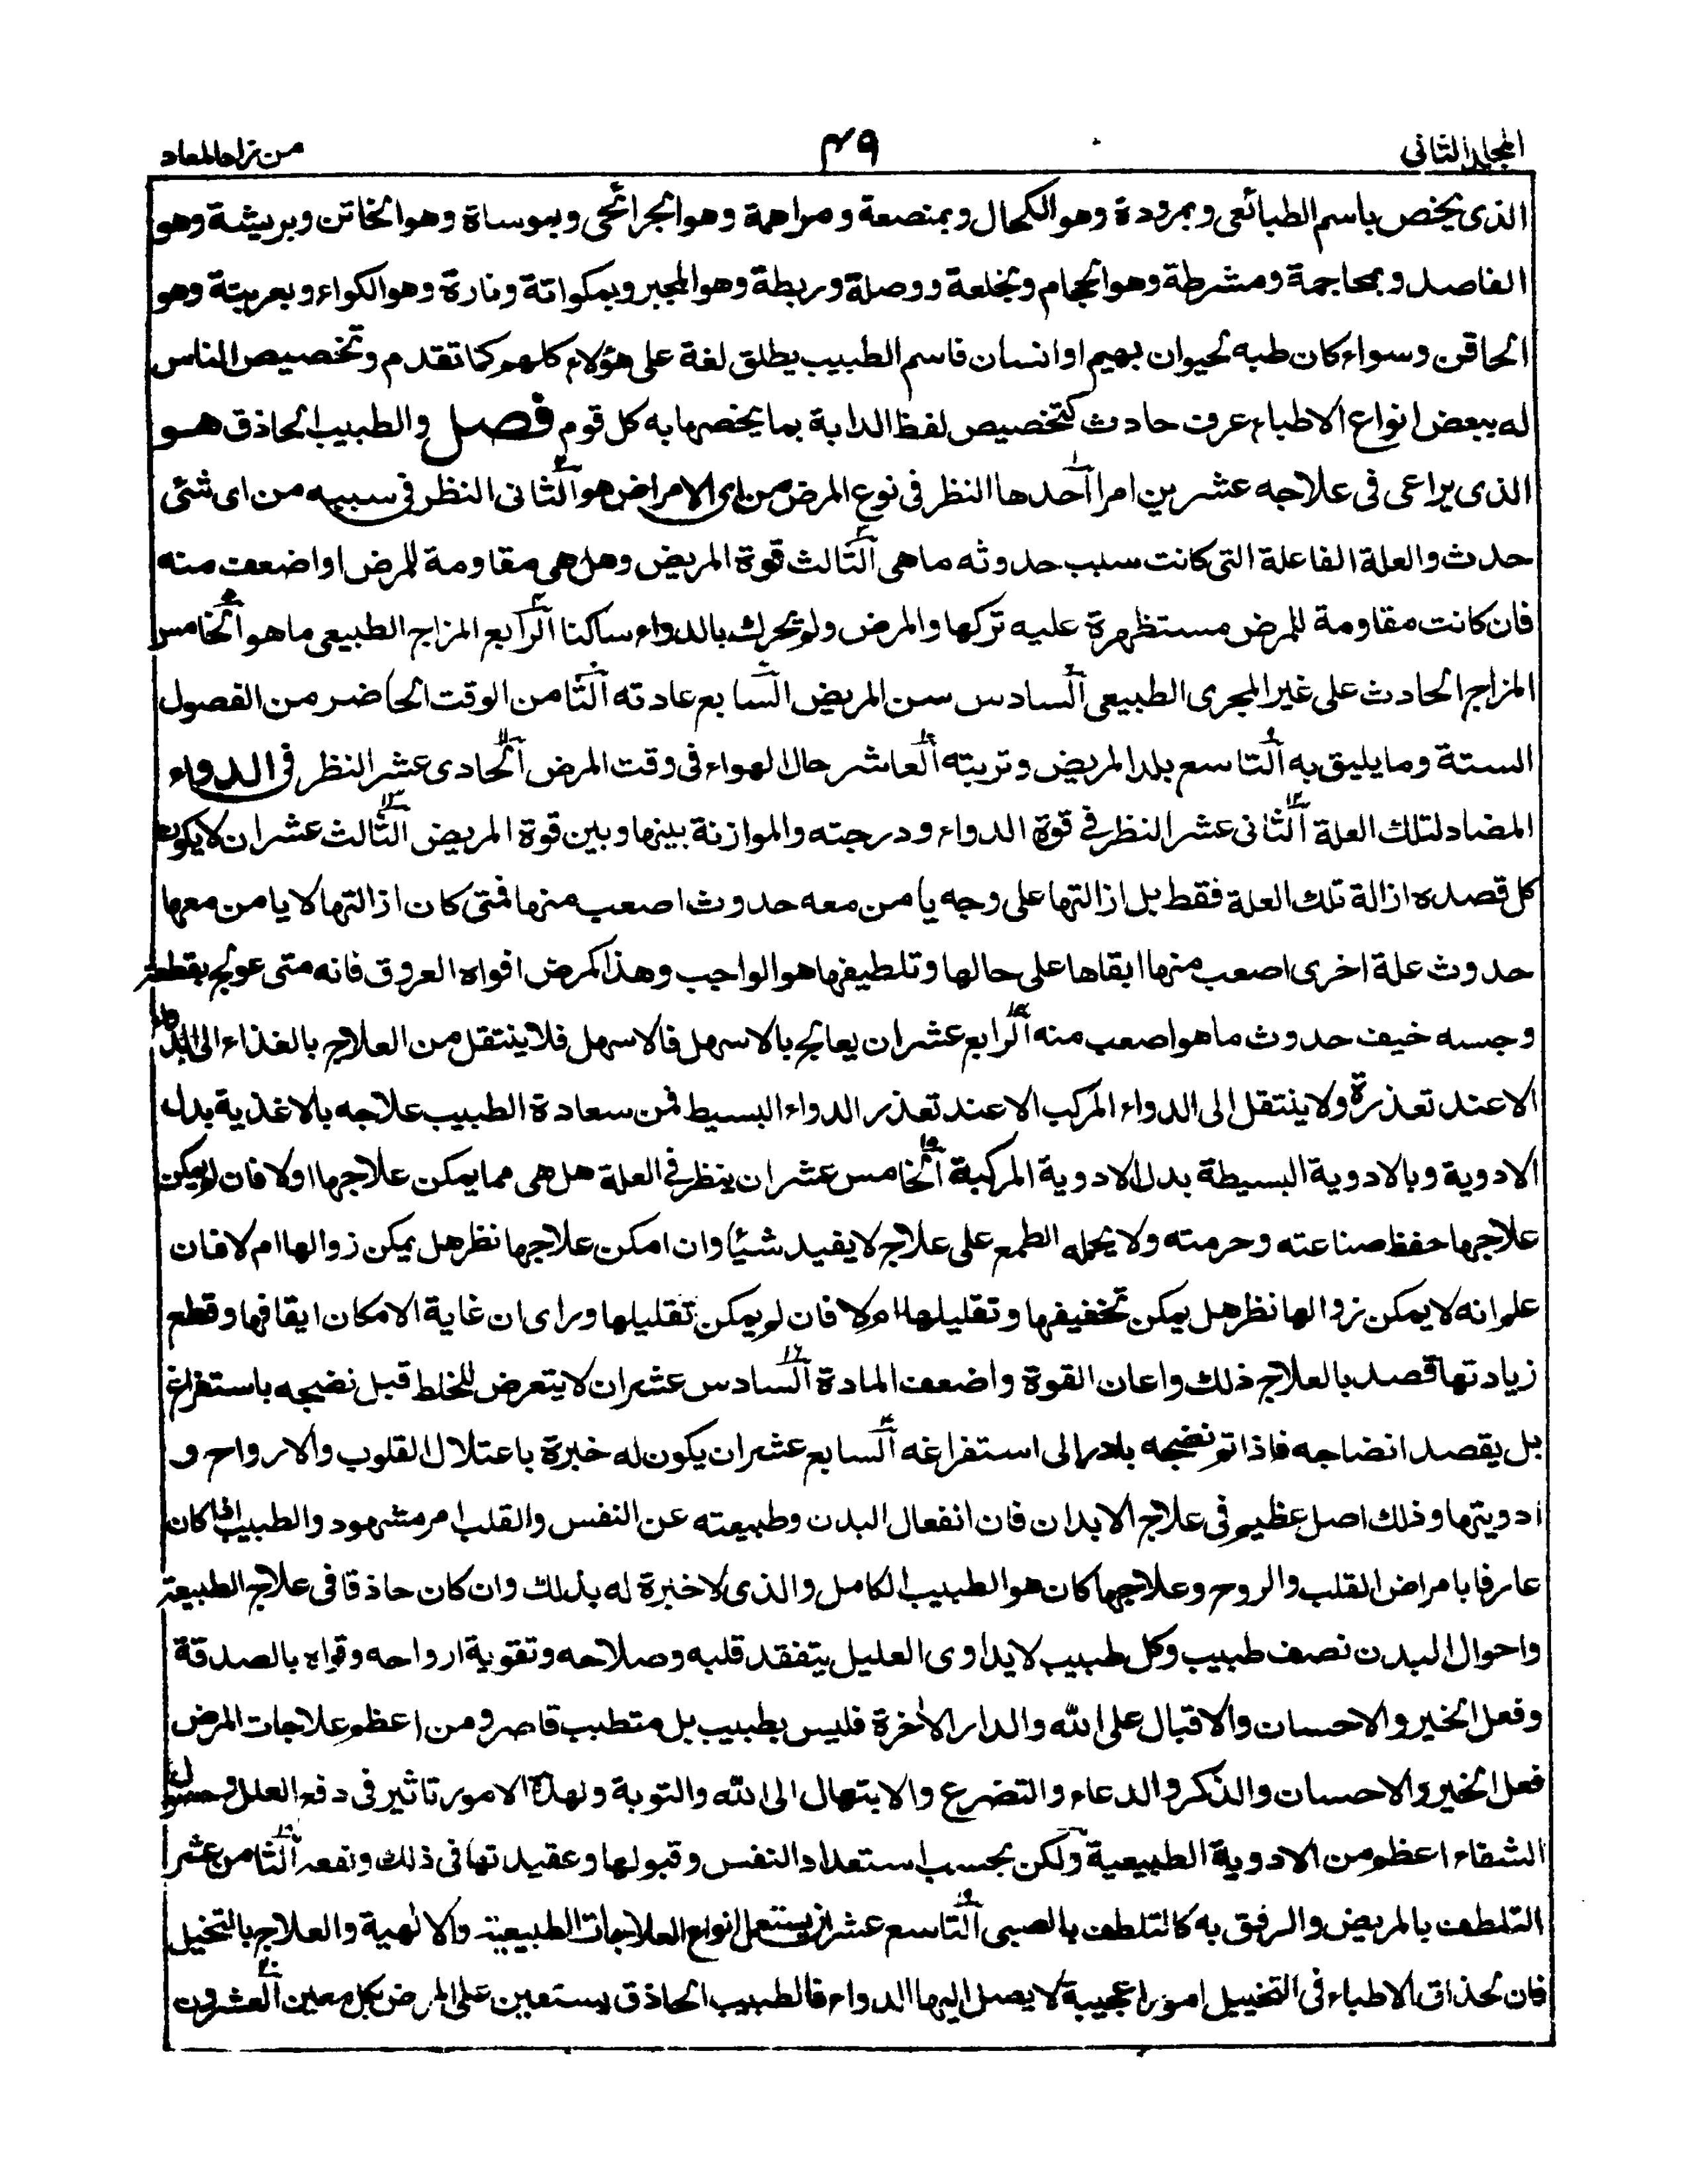 المجلد الثانی
۴۹
من زاد المعاد
الذی یختص باسم الطبائعی وبمرودة وهو الکحال وبمبضعة ومراهمة وهو الجرائحی وبموساة وهو الخاتن وبریشة وهو
الفاصد وبمحاجمة ومشرطة وهو الحجام وبخلعة ووصلة وربطة وهو المجبر وبمکواتة ونارة وهو الکواء وبعربیتة وهو
الحاقن وسواء کان طبه لحیوان بهیم او انسان فاسم الطبیب یطلق لغة علی هؤلاء کلهم کما تقدم وتخصیص الناس
له ببعض انواع الاطباء عرف حادث کتخصیص لفظ الدابة بما یخصها به کل قوم فصل والطبیب الحاذق هو
الذی یراعی فی علاجه عشرین امرا احدها النظر فی نوع المرض من ای الامراض هو الثانی النظر فی سببه من ای شئی
حدث والعلة الفاعلة التی کانت سبب حدوثه ما هی الثالث قوة المریض وهل هی مقاومة للمرض او اضعف منه
فان کانت مقاومة للمرض مستظهرة علیه ترکها والمرض ولم یحرک بالدواء ساکنا الرابع المزاج الطبیعی ما هو الخامس
المزاج الحادث علی غیر المجری الطبیعی السادس سن المریض السابع عادته الثامن الوقت الحاضر من الفصول
الستة وما یلیق به التاسع بلد المریض وتربته العاشر حال الهواء فی وقت المرض الحادی عشر النظر فی الدواء
المضاد لتلك العلة الثانی عشر النظر فی قوة الدواء ودرجته والموازنة بینها وبین قوة المریض الثالث عشر ان لا یکون
کل قصده ازالة تلك العلة فقط بل ازالتها علی وجه یامن معه حدوث اصعب منها فمتی کان ازالتها لا یامن معها
حدوث علة اخری اصعب منها ابقاها علی حالها وتلطیفها هو الواجب وهذا کمرض افواه العروق فانه متی عولج بقطعه
وحبسه خیف حدوث ما هو اصعب منه الرابع عشر ان یعالج بالاسهل فالاسهل فلا ینتقل من العلاج بالغذاء الی الدواء
الا عند تعذرة ولا ینتقل الی الدواء المرکب الا عند تعذر الدواء البسیط فمن سعادة الطبیب علاجه بالاغذیة بدل
الادویة وبالادویة البسیطة بدل الادویة المرکبة الخامس عشر ان ینظر فی العلة هل هی مما یمکن علاجها اولا فان لم یمکن
علاجها حفظ صناعته وحرمته ولا یحمله الطمع علی علاج لا یفید شیئا وان امکن علاجها نظر هل یمکن زوالها ام لا فان
علم انه لا یمکن زوالها نظر هل یمکن تخفیفها وتقلیلها ام لا فان لم یمکن تقلیلها ورای ان غایة الامکان ایقافها وقطع
زیادتها قصد بالعلاج ذلك واعان القوة واضعف المادة السادس عشر ان لا یتعرض للخلط قبل نضجه باستفراغ
بل یقصد انضاجه فاذا تم نضجه بادر الی استفراغه السابع عشر ان یکون له خبرة باعتلال القلوب والارواح و
ادویتها وذلك اصل عظیم فی علاج الابدان فان انفعال البدن وطبیعته عن النفس والقلب امر مشهود والطبیب اذا کان
عارفا بامراض القلب والروح وعلاجها کان هو الطبیب الکامل والذی لا خبرة له بذلك وان کان حاذقا فی علاج الطبیعة
واحوال البدن نصف طبیب وکل طبیب لا یداوی العلیل بتفقد قلبه وصلاحه وتقویة ارواحه وقواه بالصدقة
وفعل الخیر والاحسان والاقبال علی الله والدار الاخرة فلیس بطبیب بل متطبب قاصر ومن اعظم علاجات المرض
فعل الخیر والاحسان والذکر والدعاء والتضرع والابتهال الی الله والتوبة ولهذه الامور تاثیر فی دفع العلل وحصول
الشفاء اعظم من الادویة الطبیعیة ولکن بحسب استعداد النفس وقبولها وعقیدتها فی ذلك ونفعه الثامن عشر
التلطف بالمریض والرفق به کالتلطف بالصبی التاسع عشر ان یستعمل انواع العلاجات الطبیعیة والالهیة والعلاج بالتخیل
فان لحذاق الاطباء فی التخییل امورا عجیبة لا یصل الیها الدواء فالطبیب الحاذق یستعین علی المرض بکل معین العشرون